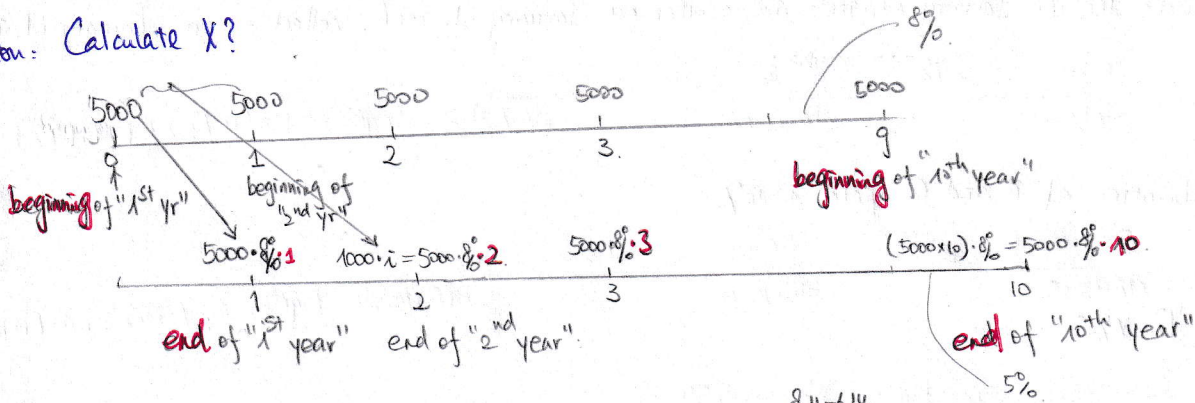 on: Calculate X?
8%
5000 5000 5000 5000 5000
0 1 2 3. 9
beginning of "1st yr"
beginning of "2nd yr"
beginning of "10th year"
5000·8%·1 1000·i=5000·8%·2 5000·8%·3 (5000x10)·8% = 5000·8%·10
1 2 3 10
end of "1st year" end of "2nd year" end of "10th year"
5%